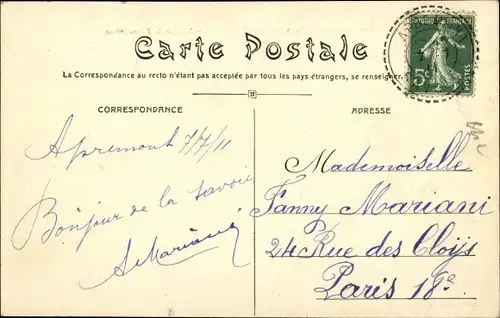 Carte Postale
La Correspondance au recto n'étant pas acceptée par tous les pays étrangers, se renseigner
CORRESPONDANCE
ADRESSE
5c
POSTES
Apremont 7/7/11
Bonjour de la Savoie
AMariani
Mademoiselle
Fanny Mariani
24 Rue des Cloÿs
Paris 18e